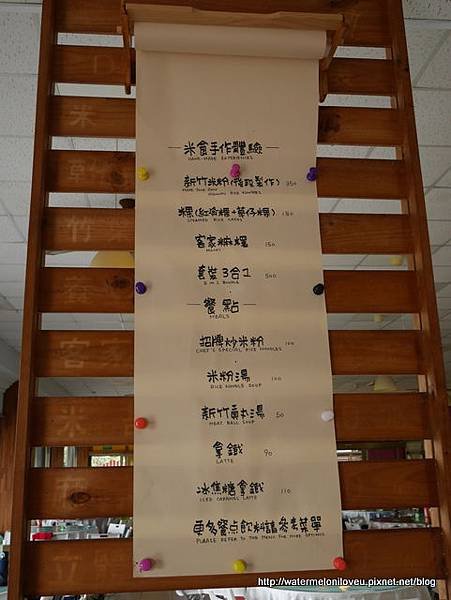 米食手作體驗
HAND-MADE EXPERIENCES
新竹米粉(後段製作) 350
粿(紅龜粿+草仔粿) 150
STEAMED RICE CAKES
客家麻糬 150
MOCHI
套裝3合1 500
3 IN 1 BUNDLE
餐點
MEALS
招牌炒米粉 100
CHEF'S SPECIAL RICE NOODLES
米粉湯 100
RICE NOODLE SOUP
新竹貢丸湯 50
MEAT BALL SOUP
拿鐵 90
LATTE
冰焦糖拿鐵 110
ICED CARAMEL LATTE
更多餐点飲料請參考菜單
PLEASE REFER TO THE MENU FOR MORE OPTIONS
http://watermeloniloveu.pixnet.net/blog